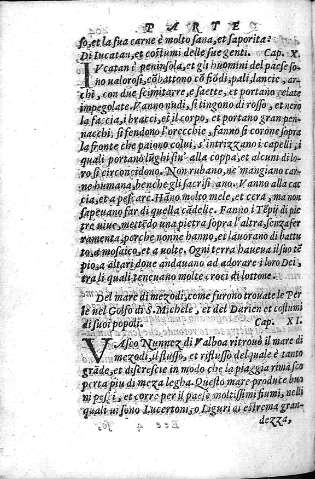 PARTE
so, et la sua carne è molto sana, et saporita:
Di Iucatan, et costumi delle sue genti. Cap. X.
IVcatan è peninsola, et gli huomini del paese so-
no ualorosi, cōbattono cō frōdi, pali, lancie, ar-
chi, con due scimitarre, e saette, et portano celate
impegolate. Vanno nudi, si tingono di rosso, et nero
la faccia, i bracci, et il corpo, et portano gran pen-
nacchi, si fendono l'orecchie, fanno si corone sopra
la fronte che paiono colui, s'intrizzano i capelli, i
quali portano lūghi sin' alla coppa, et alcuni di lo-
ro si circoncidono. Non rubano, ne mangiano car-
ne humana, benche gli sacrifi ano. Vanno alla cac-
cia, et a pescare. Hāno molto mele, et cera, ma non
sapeuano far di quella cādelle. Fanno i Tēpij di pie
tre uiue, mettēdo una pietra sopra l'altra, senza fer
ramenta, perche nonne hanno, et lauorano di battu
to, a mosaico, et a uolte. Ogni terra haueua il suo tē
pio, o altari doue andauano ad adorare i loro Dei,
tra li quali teneuano molte croci di lottone.
Del mare di mezodi, come furono trouate le Per
le nel Golfo di S. Michele, et del Darien et costumi
di suoi popoli. Cap. XI.
VAsco Nunnez di Valboa ritrouò il mare di
mezodi, il flusso, et riflusso del quale è tanto
grāde, et discrescie in modo che la piaggia rima sco
perta piu di meza legha. Questo mare produce buo
ni pesci, et corre per il paese moltissimi fiumi, nelli
quali ui sono Lucertoni, o Liguri di estrema gran-
dezza,